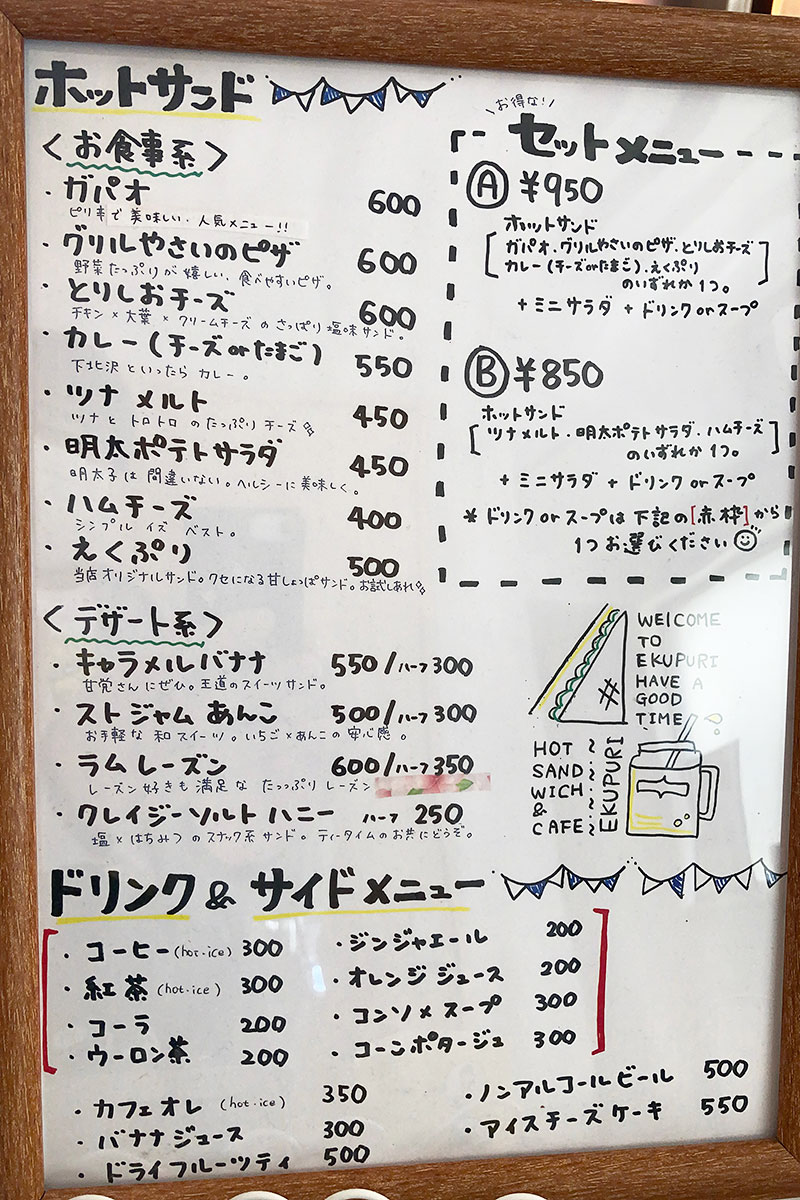 ホットサンド
〈お食事系〉
・ガパオ 600
ピリ辛で美味しい、人気メニュー!!
・グリルやさいのピザ 600
野菜たっぷりが嬉しい、食べやすいピザ。
・とりしおチーズ 600
チキン×大葉×クリームチーズのさっぱり塩味サンド。
・カレー(チーズorたまご) 550
下北沢といったらカレー。
・ツナメルト 450
ツナとトロトロのたっぷりチーズ
・明太ポテトサラダ 450
明太子は間違いない。ヘルシーに美味しく。
・ハムチーズ 400
シンプルイズベスト。
・えくぷり 500
当店オリジナルサンド。クセになる甘しょっぱサンド。お試しあれ
〈デザート系〉
・キャラメルバナナ 550/ハーフ300
甘党さんにぜひ。王道のスイーツサンド。
・ストジャムあんこ 500/ハーフ300
お手軽な和スイーツ。いちご×あんこの安心感。
・ラムレーズン 600/ハーフ350
レーズン好きも満足なたっっぷりレーズン
・クレイジーソルトハニー ハーフ 250
塩×はちみつのスナック系サンド。ティータイムのお共にどうぞ。
お得な!
セットメニュー
Ⓐ ¥950
ホットサンド
[ガパオ.グリルやさいのピザ.とりしおチーズ
カレー(チーズorたまご).えくぷり]
のいずれか1つ。
+ミニサラダ+ドリンクorスープ
Ⓑ ¥850
ホットサンド
[ツナメルト.明太ポテトサラダ.ハムチーズ]
のいずれか1つ。
+ミニサラダ+ドリンクorスープ
※ドリンクorスープは下記の[赤枠]から
1つお選びください
WELCOME
TO
EKUPURI
HAVE A
GOOD
TIME
HOT
SAND
WICH
&
CAFE
EKUPURI
ドリンク&サイドメニュー
・コーヒー(hot・ice) 300
・紅茶(hot・ice) 300
・コーラ 200
・ウーロン茶 200
・ジンジャエール 200
・オレンジジュース 200
・コンソメスープ 300
・コーンポタージュ 300
・カフェオレ(hot・ice) 350
・バナナジュース 300
・ドライフルーツティ 500
・ノンアルコールビール 500
・アイスチーズケーキ 550